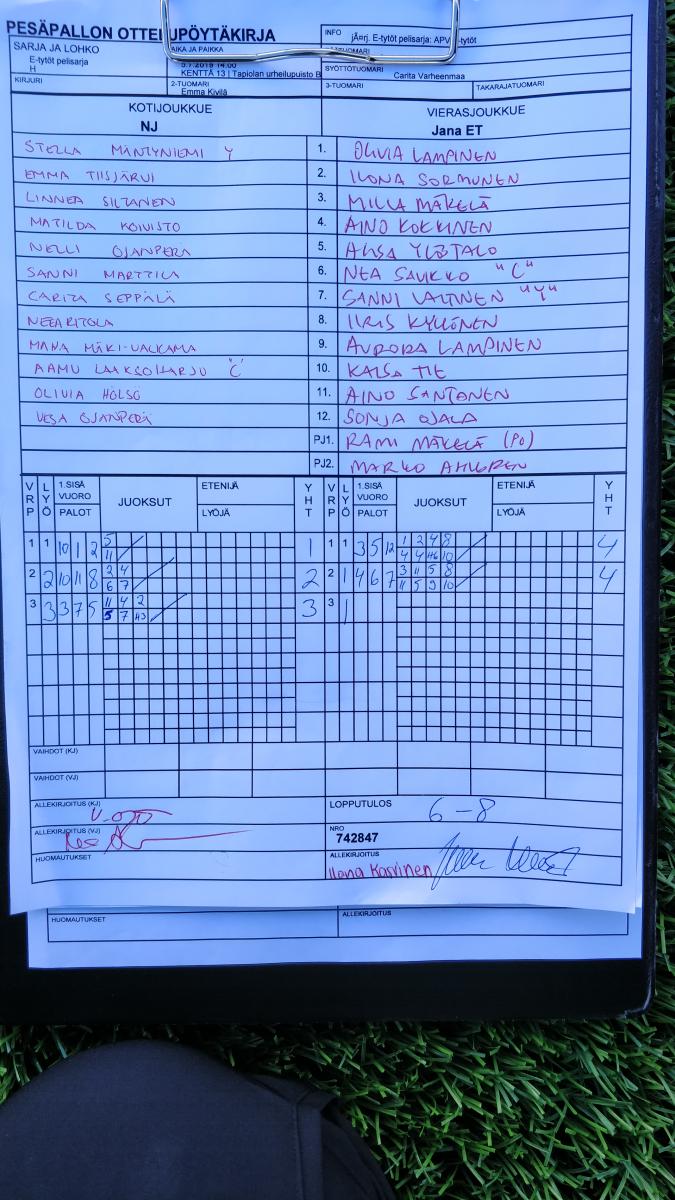 PESÄPALLON OTTELUPÖYTÄKIRJA
INFO jÃ¤rj. E-tytöt pelisarja: APV -tytöt
SARJA JA LOHKO
E-tytöt pelisarja
H
AIKA JA PAIKKA
5.7.2019 14.00
KENTTÄ 13 | Tapiolan urheilupuisto B
SYÖTTÖTUOMARI
Carita Varheenmaa
KIRJURI
2-TUOMARI
Emma Kivilä
3-TUOMARI
TAKARAJATUOMARI
KOTIJOUKKUE
NJ
VIERASJOUKKUE
Jana ET
STELLA MÄNTYNIEMI Y 1. OLIVIA LAMPINEN
EMMA TIISJÄRVI 2. ILONA SORMUNEN
LINNEA SILTANEN 3. MILLA MÄKELÄ
MATILDA KOIVISTO 4. AINO KOKKINEN
NELLI OJANPERÄ 5. AHSA YLÖTALO
SANNI MARTTILA 6. NEA SAUKKO "C"
CARITA SEPPÄLÄ 7. SANNI VALTINEN "Y"
NEEA RITOLA 8. IIRIS KYLLÖNEN
MANA MÄKI-VALKAMA 9. AURORA LAMPINEN
AAMU LAAKSOHARJU "C" 10. KAISA TIE
OLIVIA HÖLSÖ 11. AINO SANTONEN
VESA OJANPERÄ 12. SONJA OJALA
PJ1. RAMI MÄKELÄ (PO)
PJ2. MARKO AHLGREN
VRP LYÖ 1.SISÄ VUORO PALOT JUOKSUT ETENIJÄ LYÖJÄ YHT VRP LYÖ 1.SISÄ VUORO PALOT JUOKSUT ETENIJÄ LYÖJÄ YHT
1 1 10 1 2 5 1 1 1 3 5 12 1 2 4 8 4
11 4 4 10
2 2 10 11 8 2 4 2 2 1 4 6 7 3 11 5 8 4
6 7 11 5 9 10
3 3 3 7 5 11 4 2 3 3 1
5 7
VAIHDOT (KJ)
VAIHDOT (VJ)
ALLEKIRJOITUS (KJ)
LOPPUTULOS 6-8
ALLEKIRJOITUS (VJ)
NRO
742847
HUOMAUTUKSET
ALLEKIRJOITUS
Ilona Kasvinen
HUOMAUTUKSET
ALLEKIRJOITUS